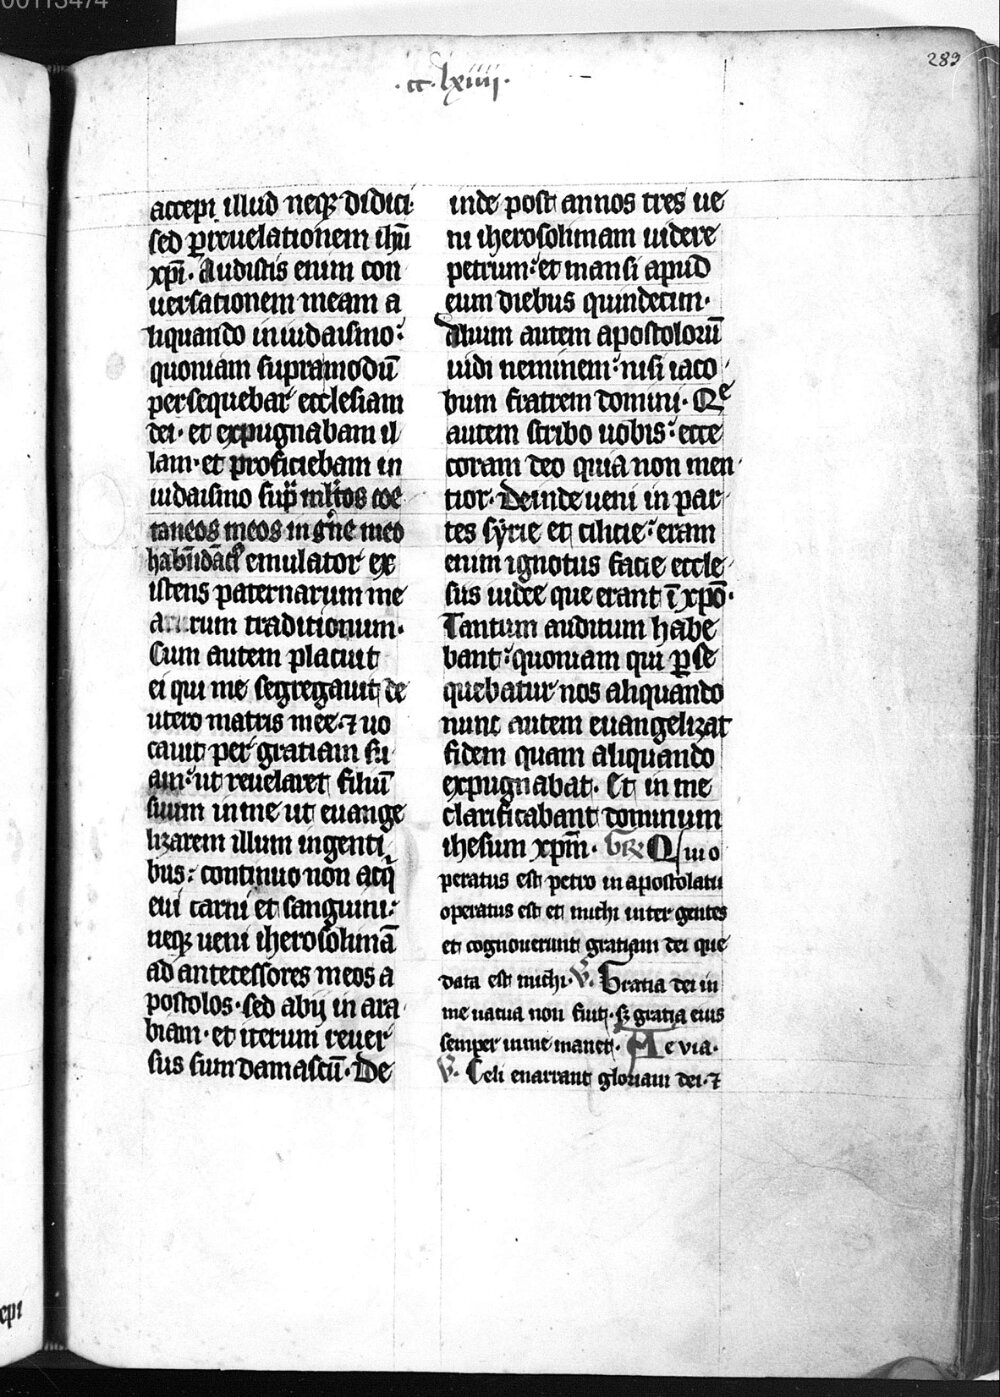 00113474
283
.cc.lxiiii.
accepi illud neqꝫ didici·
sed ꝑ reuelationem ihū
xpī. Audistis enim con
uersationem meam a
liquando in iudaismo:
quoniam supra modū
persequebar ecclesiam
dei. et expugnabam il
lam. et proficiebam in
iudaismo
taneos meos in
emulator ex
istens paternarum me
arum traditionum.
Cum autem placuit
ei qui me segregauit de
utero matris mee. ⁊ uo
cauit per gratiam su
am: ut reuelaret filiū
suum in me ut euange
lizarem illum in genti
bus: continuo non acq̄
eui carni et sanguini:
neqꝫ ueni iherosolimā
ad antecessores meos a
postolos. sed abij in ara
biam. et iterum reuer
sus sum damascū. De
inde post annos tres ue
ni iherosolimam uidere
petrum: et mansi apud
eum diebus quindecim.
Alium autem apostolorū
uidi neminem: nisi iaco
bum fratrem domini. Qe
autem scribo uobis: ecce
coram deo quia non men
tior. Deinde ueni in par
tes syrie et cilicie: eram
enim ignotus facie eccle
siis iudee que erant ī xpō.
Tantum auditum habe
bant: quoniam qui ꝑse
quebatur nos aliquando
nunc autem euangelizat
fidem quam aliquando
expugnabat. Et in me
clarificabant dominum
ihesum xpm̄. Qui o
peratus est petro in apostolatu
operatus est et michi inter gentes
et cognouerunt gratiam dei que
data est michi. V. Gratia dei in
me uacua non fuit. sꝫ gratia eius
semper in me manet. Aeuia.
V. Celi enarrant gloriam dei. ⁊
cepi